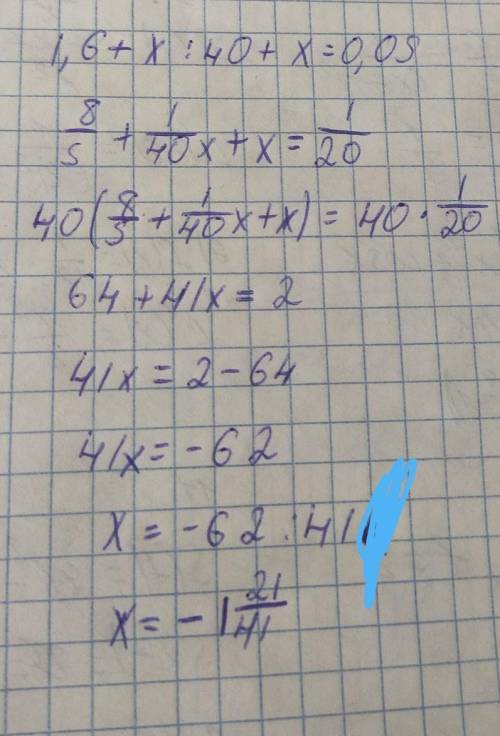 1,6+x:40+x=0,05
8/5 + 1/40x+x= 1/20
40(8/5 + 1/40x+x) = 40 · 1/20
64+41x= 2
41x = 2-64
41x= -62
x = -62 :41
x= - 1 21/41